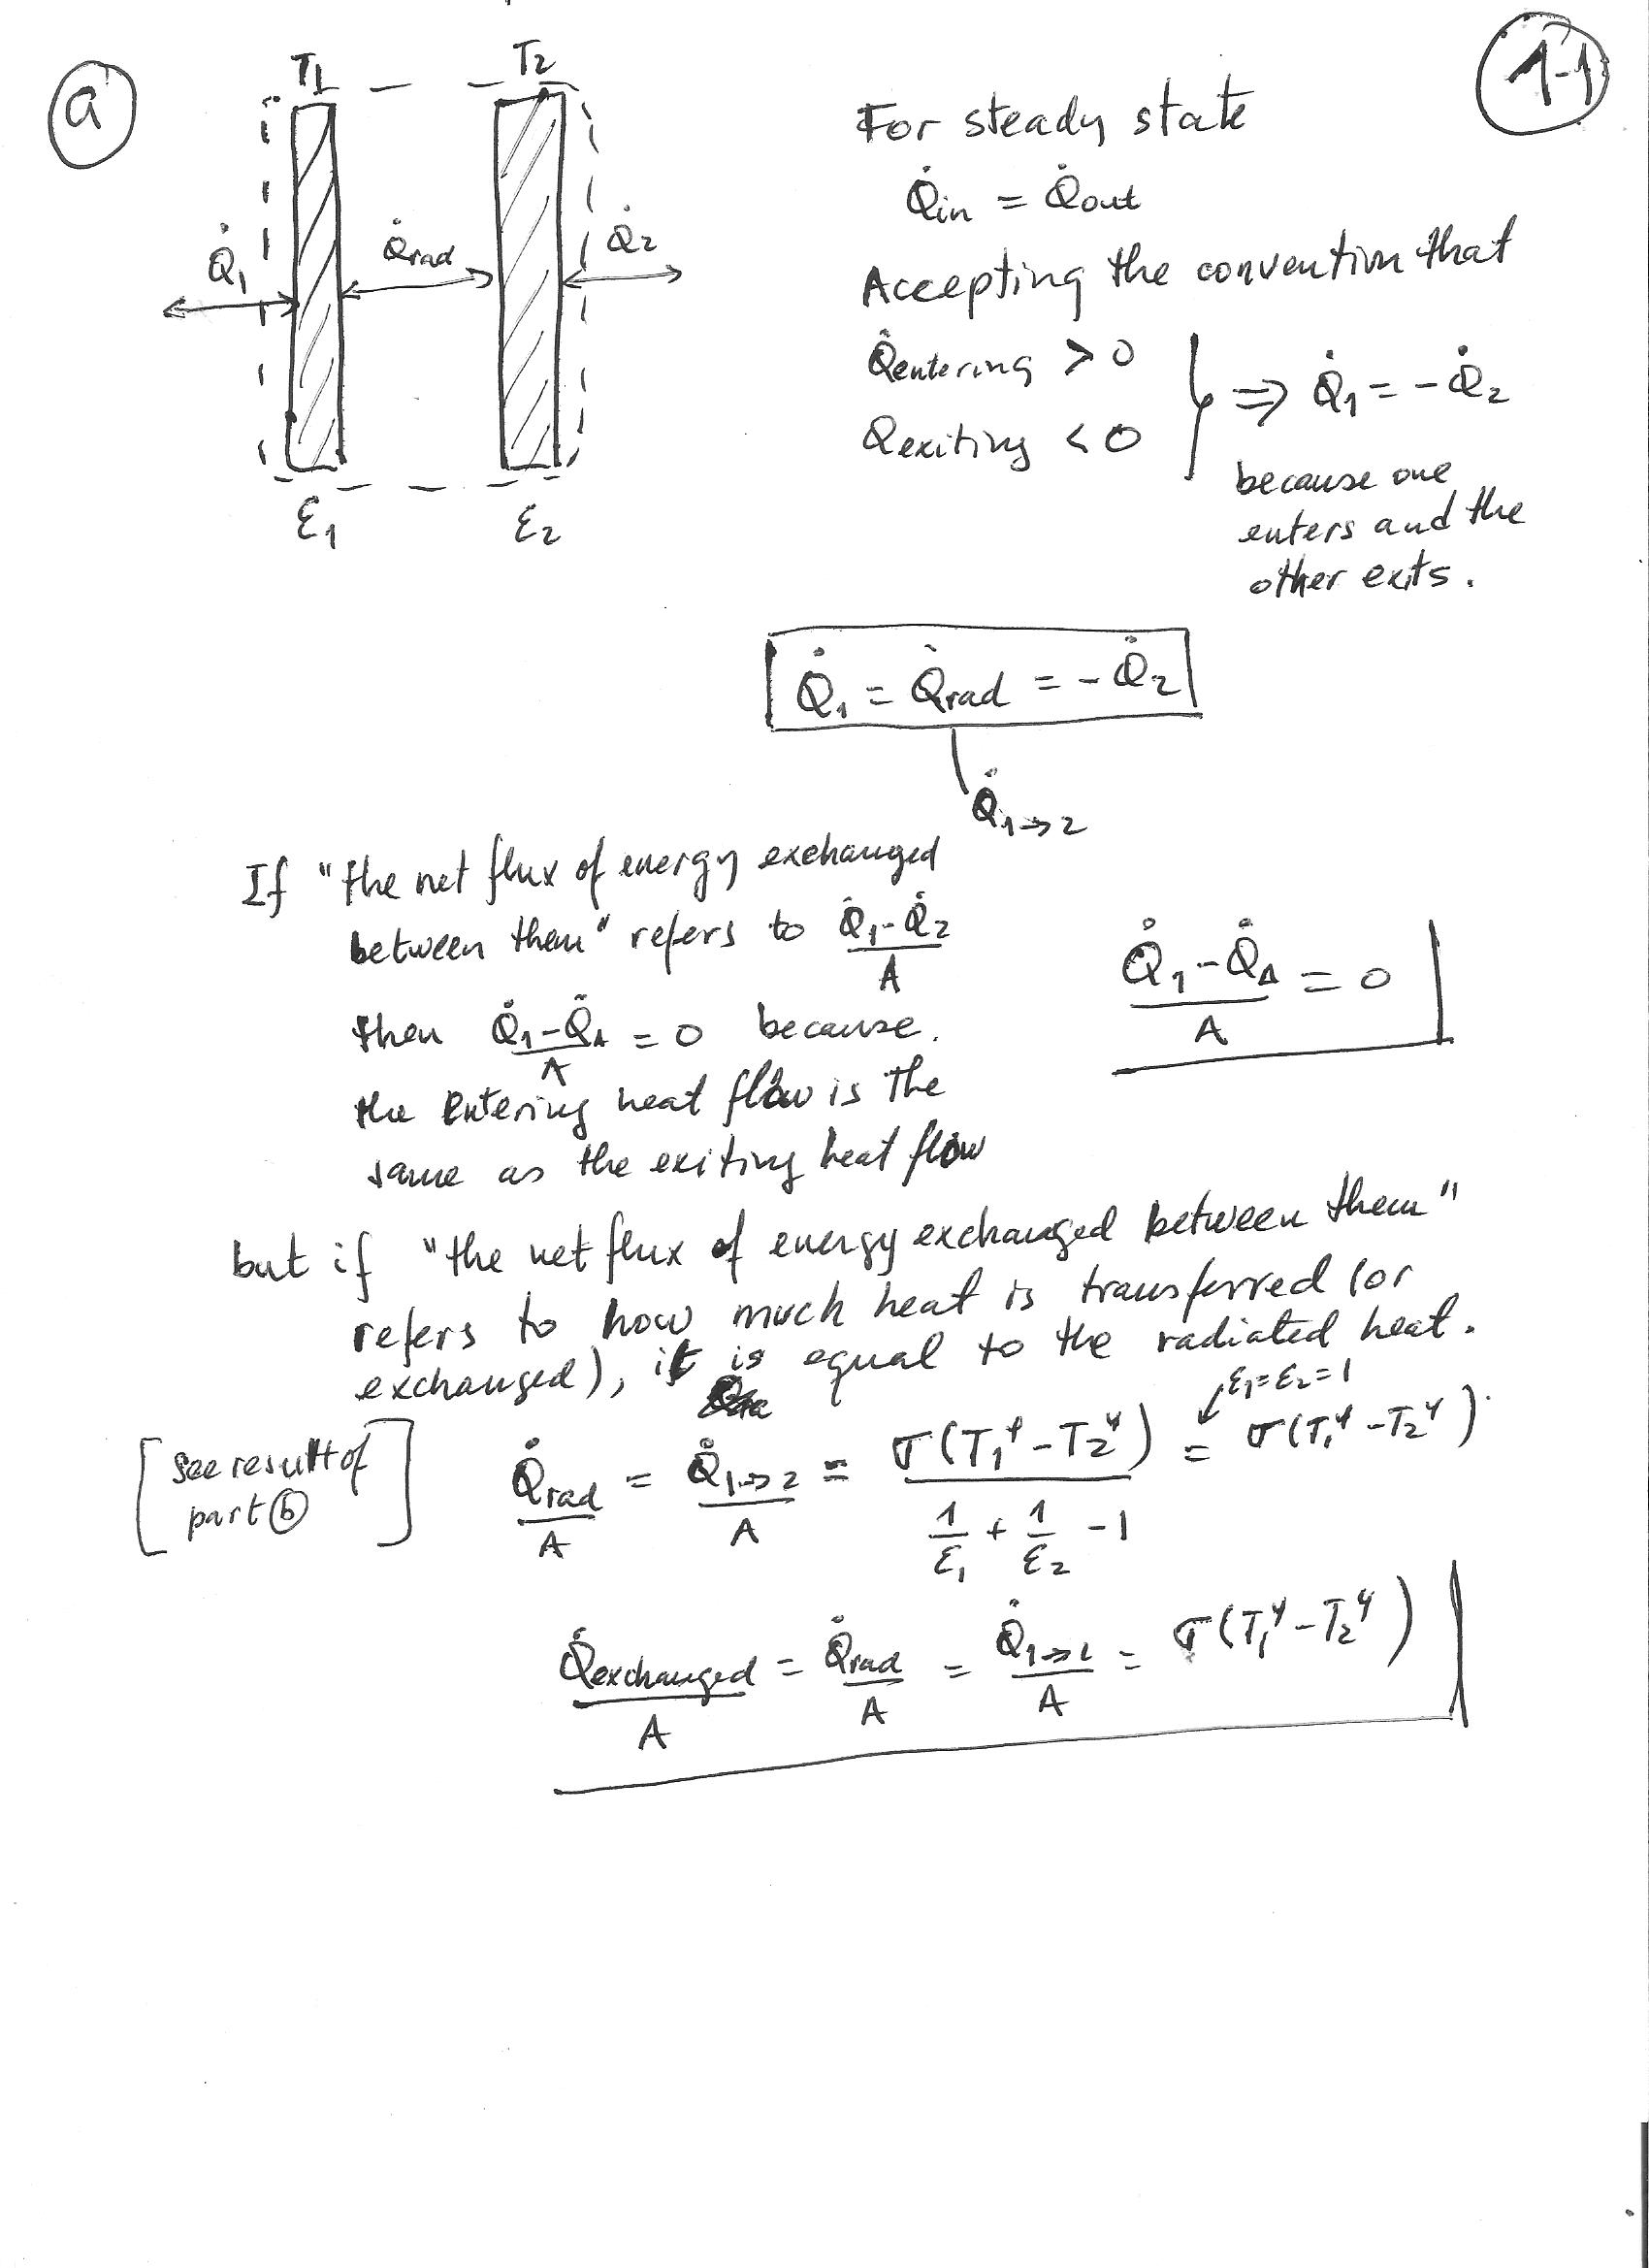 a
1-1
T1 T2
Q̇1 Q̇rad Q̇2
ε1 ε2
For steady state
Q̇in = Q̇out
Accepting the convention that
Q̇entering > 0
Qexiting < 0
⇒ Q̇1 = - Q̇2
because one
enters and the
other exits.
Q̇1 = Q̇rad = - Q̇2
Q̇1→2
If "the net flux of energy exchanged
between them" refers to (Q̇1-Q̇2)/A
then (Q̇1-Q̇1)/A = 0 because.
the entering heat flow is the
same as the exiting heat flow
(Q̇1-Q̇1)/A = 0
but if "the net flux of energy exchanged between them"
refers to how much heat is transferred (or
exchanged), it is equal to the radiated heat.
ε1=ε2=1
[see result of
part b]
Q̇rad/A = Q̇1→2/A = σ(T1⁴-T2⁴)/(1/ε1 + 1/ε2 -1) = σ(T1⁴-T2⁴)
Q̇exchanged/A = Q̇rad/A = Q̇1→2/A = σ(T1⁴-T2⁴)